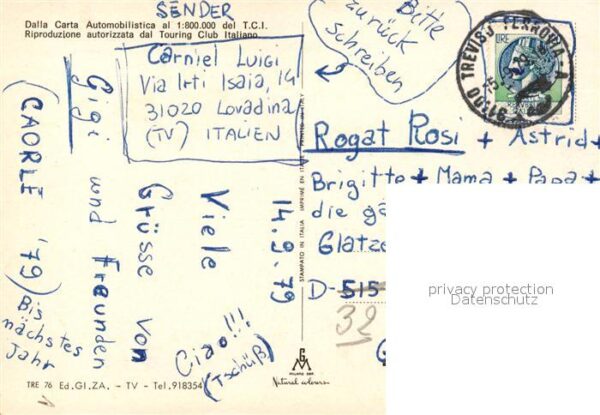 SENDER
Dalla Carta Automobilistica al 1:800.000 del T.C.I.
Riproduzione autorizzata dal Touring Club Italiano
Carniel Luigi
Via Irti Isaia, 14
31020 Lovadina
(TV) ITALIEN
Bitte
zurück
schreiben
31100 TREVISO FERROVIA-A
LIRE
14.9.79
Viele
Grüsse von
Gigi und Freunden
(CAORLE '79)
Bis
nächstes
Jahr
Ciao!!!
(Tschüß)
Rogat Rosi + Astrid +
Brigitte + Mama + Papa +
die
Glatze
D-515
32
privacy protection
Datenschutz
STAMPATO IN ITALIA
GM
MILANO
Natural colours
TRE 76 Ed.GI.ZA. - TV - Tel.918354